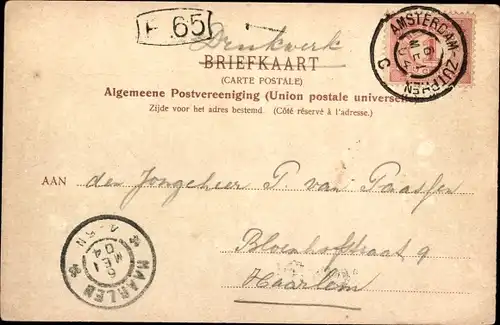 65
Drukwerk
BRIEFKAART
(CARTE POSTALE)
Algemeene Postvereeniging (Union postale universelle)
Zijde voor het adres bestemd. (Côté réservé à l'adresse.)
AMSTERDAM-ZUTPHEN
6
MEI
04
C
AAN den Jongeheer P. van Paassen
Bloemhofstraat 9
Haarlem
HAARLEM
6
MEI
04